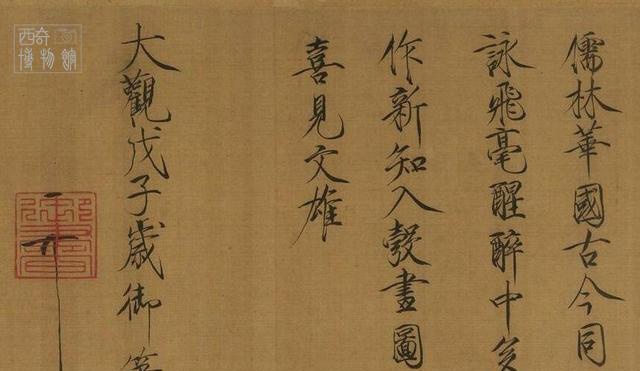 儒林華國古今同
詠飛毫醒醉中
作新知入彀畫圖
喜見文雄
大觀戊子歲御
御書
西奇
博物館